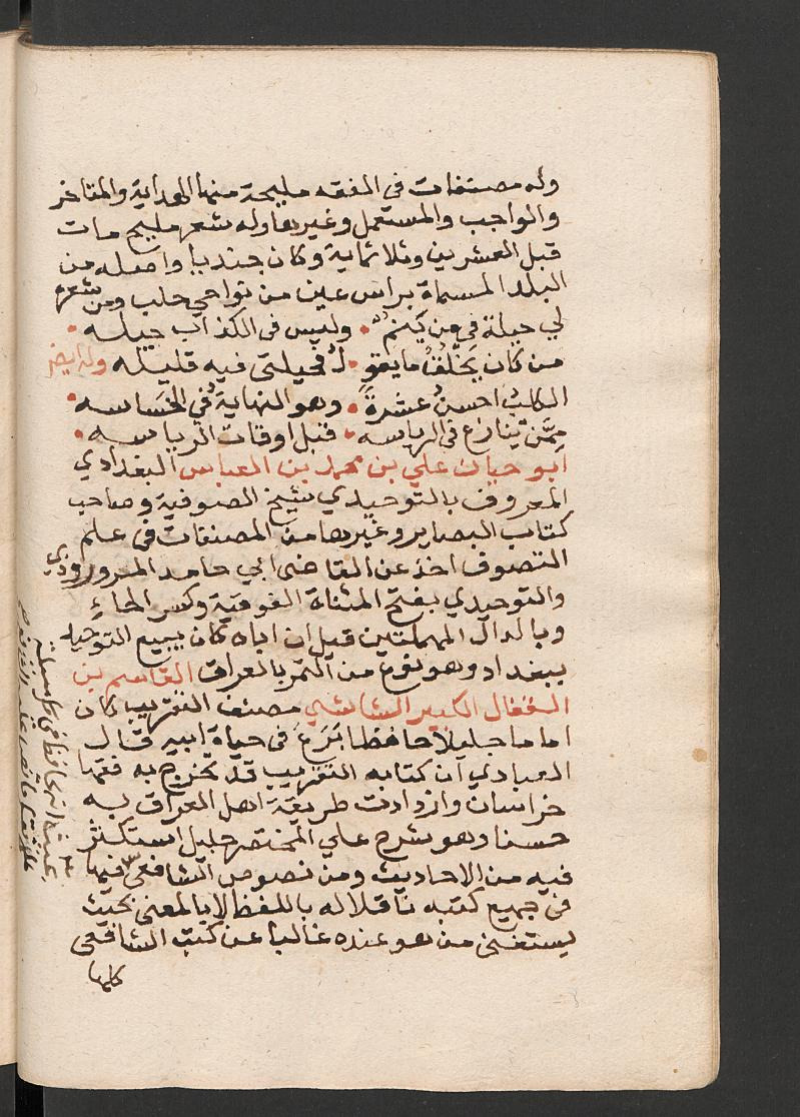 وله مصنفات في الفقه مليحة منها الهداية والمسافر
والواجب والمستعمل وغيرها وله شعر مليح مات
قبل العشرين وثلاثماية وكان جنديا واصله من
البلد المسماة براس عين من نواحي حلب ومن شعره
لي حيلة في من ينم • وليس في الكذاب حيله •
من كان يخلق ما يقو • ل فحيلتي فيه قليله وله ايضا
الكلب احسن عشرة • وهو النهاية في الخساسه •
ممن ينازع في الرياسه • قبل اوقات الرياسه •
ابو حيان علي بن محمد بن العباس البغدادي
المعروف بالتوحيدي شيخ الصوفية وصاحب
كتاب البصاير وغيرها من المصنفات في علم
التصوف اخذ عن القاضي ابي حامد المروروذي
والتوحيدي بفتح المثناة الفوقية وكسر الحاء
وبالدال المهملتين قيل ان اباه كان يبيع التوحيد
ببغداد وهو نوع من التمر بالعراق القاسم بن
القفال الكبير الشاشي مصنف التقريب كان
اماما جليلا حافظا برع في حياة ابيه قال
العبادي ان كتابه التقريب قد تخرج به فقها
خراسان وازدادت طريقة اهل العراق به
حسنا وهو شرح علي المختصر جليل استكثر
فيه من الاحاديث ومن نصوص الشافعي
في جميع كتبه ناقلا له باللفظ لا بالمعنى بحيث
يستغني من هو عنده غالبا عن كتب الشافعي
كلها